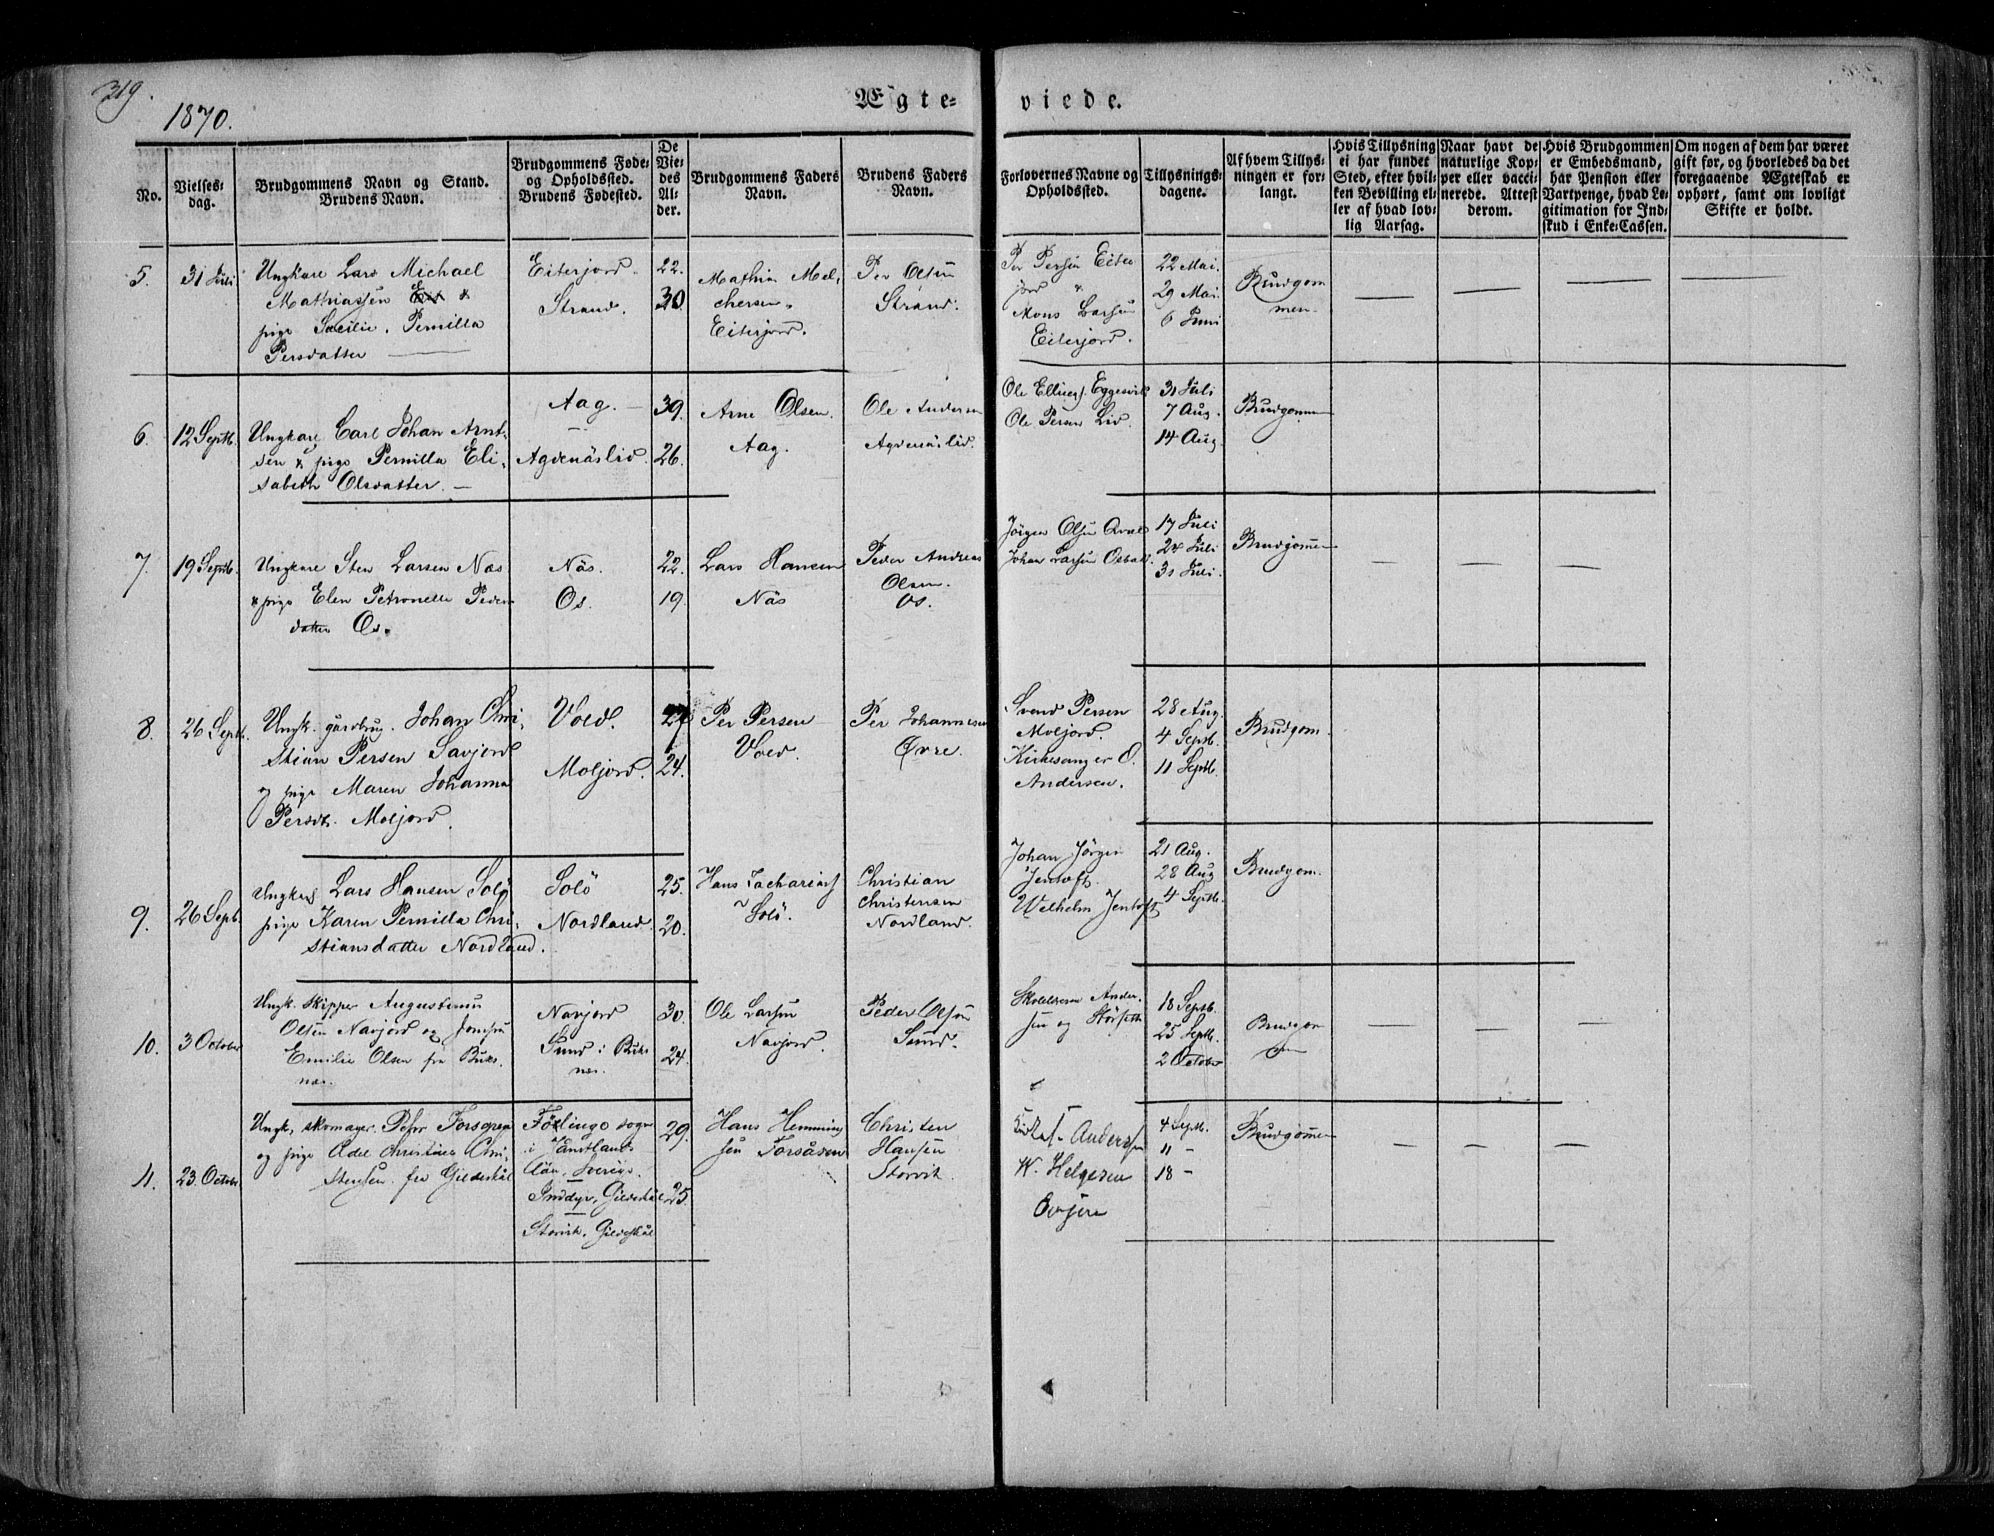 319.
1870.
Ægte-
viede.
No.
Vielses-
dag.
Brudgommens Navn og Stand.
Brudens Navn.
Brudgommens Føde-
og Opholdssted.
Brudens Fødested.
De
Vie-
des
Al-
der.
Brudgommens Faders
Navn.
Brudens Faders
Navn.
Forlovernes Navne og
Opholdssted.
Tillysnings-
dagene.
Af hvem Tillys-
ningen er for-
langt.
Hvis Tillysning
ei har fundet
Sted, efter hvil-
ken Bevilling el-
ler af hvad lov-
lig Aarsag.
Naar havt de
naturlige Kop-
per eller vacci-
nerede. Attest
derom.
Hvis Brudgommen
er Embedsmand,
har Pension eller
Vartpenge, hvad Le-
gitimation for Ind-
skud i Enke-Cassen.
Om nogen af dem har været
gift før, og hvorledes da det
foregaaende Ægteskab er
ophørt, samt om lovligt
Skifte er holdt.
5.
31 Juli
Ungkarl Lars Michael
Mathiassen
pige Sæcilie Pernilla
Persdatter
Eiterjord.
Strand.
22.
30
Mathia Mel-
chersen
Eiterjord.
Per Olsen
Strand.
Per Persen Eiter
jord &
Mons Larsen
Eiterjord.
22 Mai.
29 Mai.
6 Juni
Brudgom
men
6.
12 Septb.
Ungkarl Carl Johan Arnt-
sen & pige Pernilla Eli-
sabeth Olsdatter.
Aag.
Agdenäslid.
39.
26.
Arne Olsen.
Aag.
Ole Andersen
Agdenäslid.
Ole Ellings. Eggesvik
Ole Persen Lid.
31 Juli
7 Aug.
14 Aug.
Brudgommen
7.
19 Septb.
Ungkarl Sten Larsen Næs
& pige Elen Petronelle Peder
datter Os.
Näs.
Os.
22.
19.
Lars Hansen
Näs
Peder Andreas
Olsen
Os.
Jörgen Olsen
Johan Larsen
17 Juli
24 Juli
31 Juli.
Brudgommen
8.
26 Septb.
Ungk. gårdbrug. Johan Chri-
stian Persen Savjord
og pige Maren Johanna
Persdt. Moljord.
Vold.
Moljord.
27
24.
Per Persen
Vold.
Per Johannesen
Øvre.
Svend Persen
Moljord.
Kirkesanger O.
Andersen.
28 Aug.
4 Septb.
11 Septb.
Brudgom.
9.
26 Septb.
Ungkarl Lars Hansen Solö
pige Karen Pernilla Chri-
stiansdatter Nordland.
Solö
Nordland.
25.
20.
Hans Zachariass
Solö.
Christian
Christensen
Nordland.
Johan Jörgen
Jentoft.
Wilhelm Jentoft
21 Aug.
28 Aug
4 Septb.
Brudgom.
10.
3 October
Ungk. skipper Augustinus
Olsen Navjord og Jomfru
Emilie Olsen fra Buks
næs.
Navjord
Sund i Buks
næs.
30.
24.
Ole Larsen
Navjord.
Peder Olsen
Sund.
Skolelærer Ander-
sen og
18 Septb.
25 Septb.
2 October
Brudgom
11.
23. October
Ungk. skomager. Pehr Forsgren
og pige Adel Christine Chri-
stensen fra Gildeskål
Fölinge sogn
i Jämtlands
Län. Sverige.
Inddyr, Gildeskål
Storvik. Gildeskål
29.
25.
Hans Hemming
sen Forsåsen
Christen
Hansen
Storvik.
Andersen
W. Helgesen
4 Septb.
11 -
18 -
Brudgommen